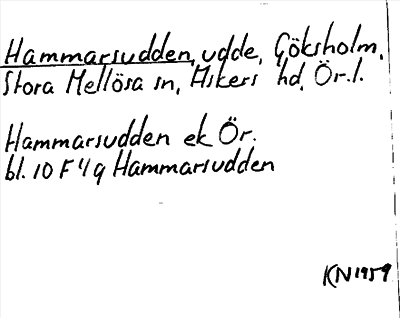 Hammarsudden, udde, Göksholm,
Stora Mellösa sn, Askers hd, Ör.l.
Hammarsudden ek Ör.
bl. 10 F 4g Hammarsudden
KN 1959